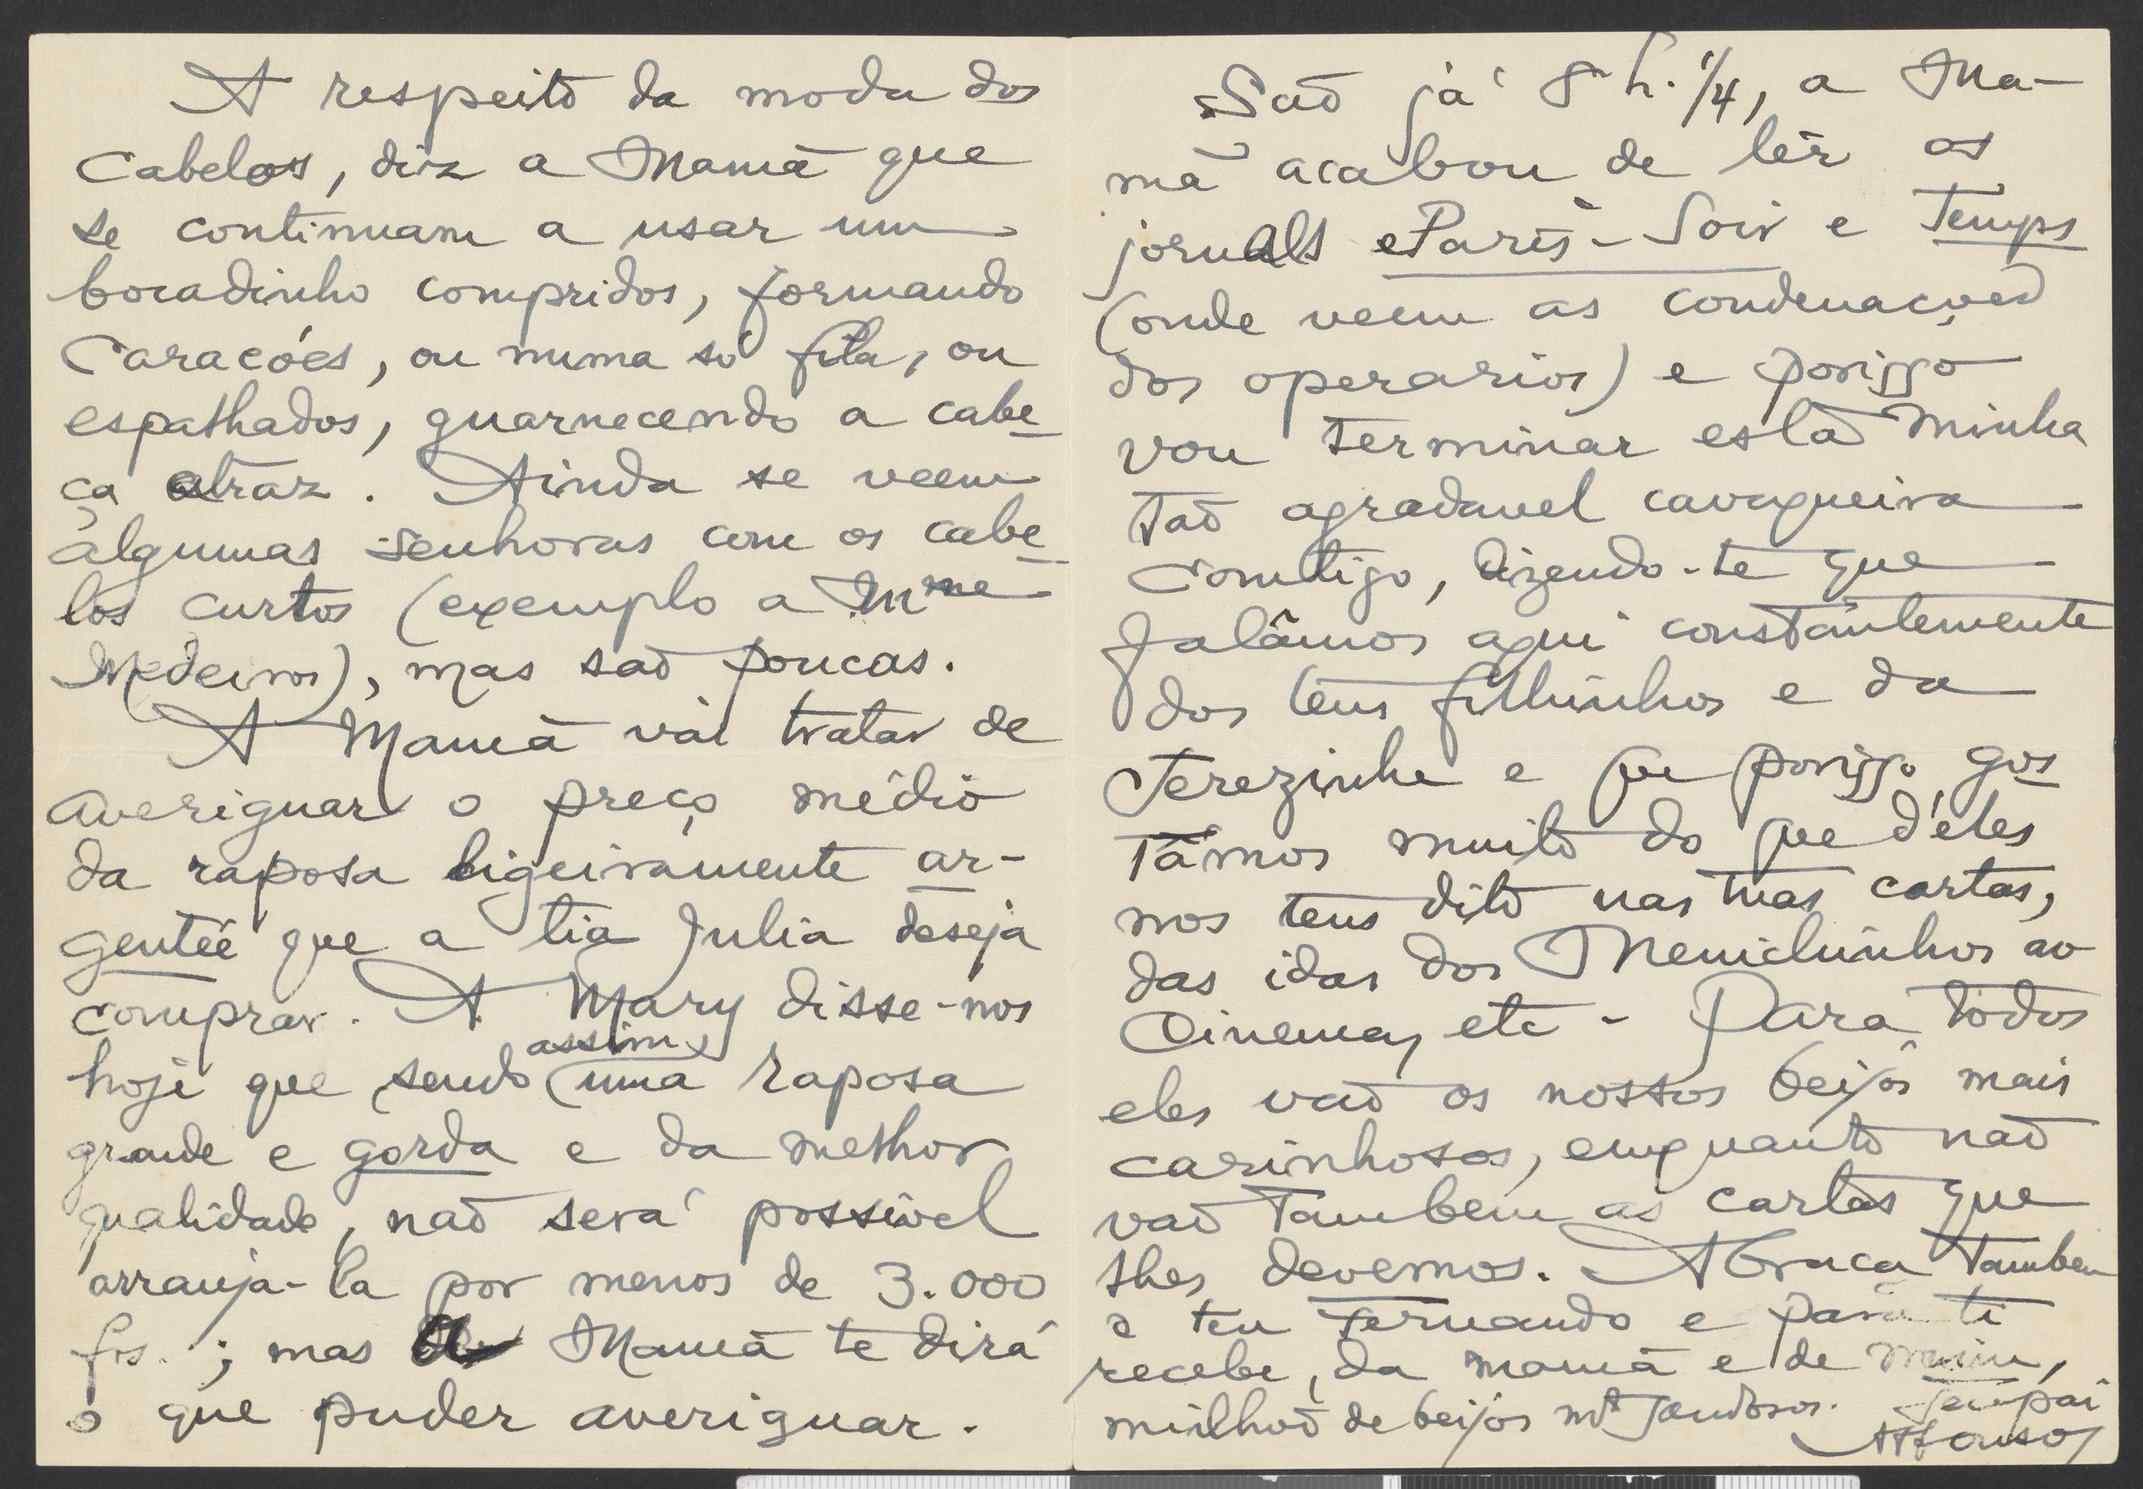 A respeito da moda dos
cabelos, diz a Mamã que
se continuam a usar um
bocadinho compridos, formando
caracóes, ou numa só fila, ou
espalhados, guarnecendo a cabe-
ça atraz. Ainda se veem
algumas senhoras com os cabe-
los curtos (exemplo a Mme
Medeiros), mas são poucas.
A Mamã vai tratar de
averiguar o preço médio
da raposa ligeiramente ar-
gentée que a tia Julia deseja
comprar. A Mary disse-nos
hoje que sendo assim uma raposa
grande e gorda e da melhor
qualidade, não será possivel
arranja-la por menos de 3.000
frs.; mas a Mamã te dirá
o que puder averiguar.
São já 8 h. 1/4, a Ma-
mã acabou de lêr os
jornais Paris-Soir e Temps
(onde veem as condenações
dos operarios) e porisso
vou terminar esta minha
tão agradavel cavaqueira
comtigo, dizendo-te que
falâmos aqui constantemente
dos teus filhinhos e da
Terezinha e que porisso gos-
tâmos muito do que d'eles
nos tens dito nas tuas cartas,
das idas dos Menichinhos ao
Cinema, etc - Para todos
eles vão os nossos beijos mais
carinhosos, emquanto não
vão tambem as cartas que
lhes devemos. Abraça tambem
o teu Fernando e para ti
recebe, da mamã e de mim,
milhão de beijos mt saudosos. Teu pai
Affonso